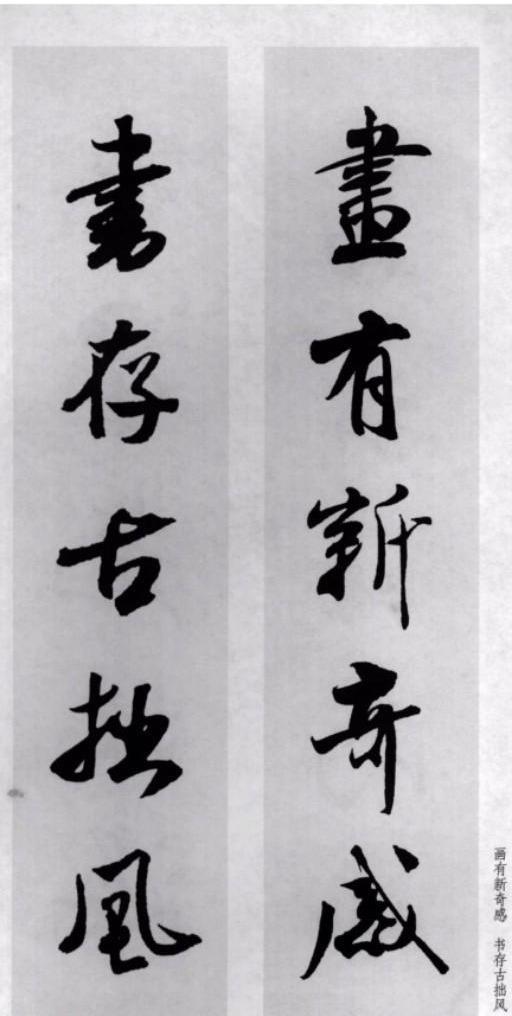 畫有新奇感
書存古拙風
画有新奇感 书存古拙风